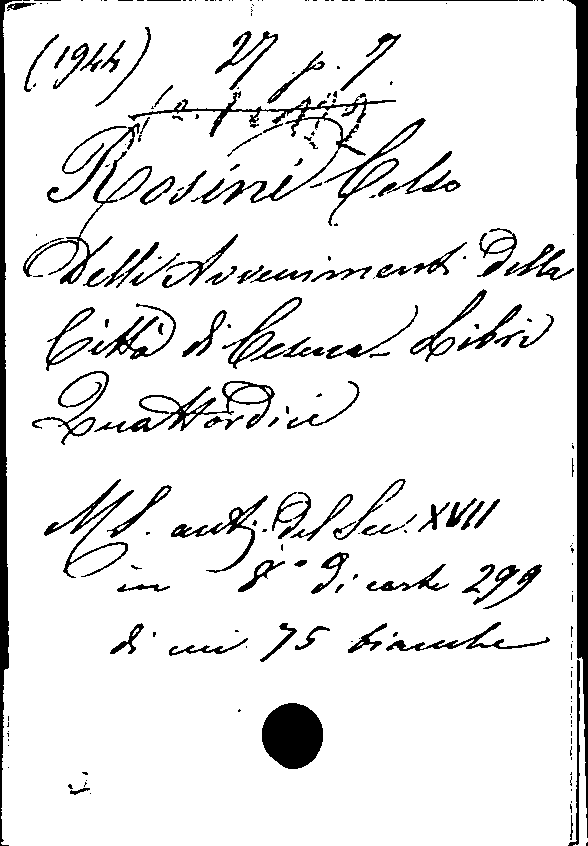 (1944) 27 p. 7
Rosini Celso
Delli Avvenimenti della
Città di Cesena - Libri
Quattordici
MS. aut. del Sec. XVII
in 8° di carte 299
di cui 75 bianche